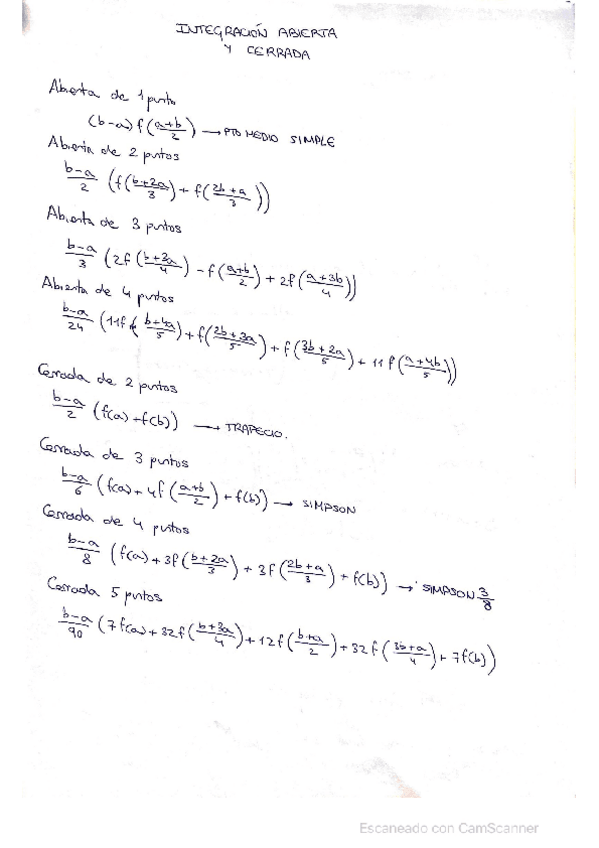 INTEGRACIÓN ABIERTA
Y CERRADA
Abierta de 1 punto
(b-a) f(a+b/2) → PTO MEDIO SIMPLE
Abierta de 2 puntos
b-a/2 (f(b+2a/3) + f(2b+a/3))
Abierta de 3 puntos
b-a/3 (2f(b+3a/4) - f(a+b/2) + 2f(a+3b/4))
Abierta de 4 puntos
b-a/24 (11f(b+4a/5) + f(2b+3a/5) + f(3b+2a/5) + 11f(a+4b/5))
Cerrada de 2 puntos
b-a/2 (f(a)+f(b)) → TRAPECIO.
Cerrada de 3 puntos
b-a/6 (f(a)+4f(a+b/2)+f(b)) → SIMPSON
Cerrada de 4 puntos
b-a/8 (f(a)+3f(b+2a/3) + 3f(2b+a/3) + f(b)) → SIMPSON 3/8
Cerrada 5 puntos
b-a/90 (7f(a)+32f(b+3a/4)+12f(b+a/2)+32f(3b+a/4)+7f(b))
Escaneado con CamScanner